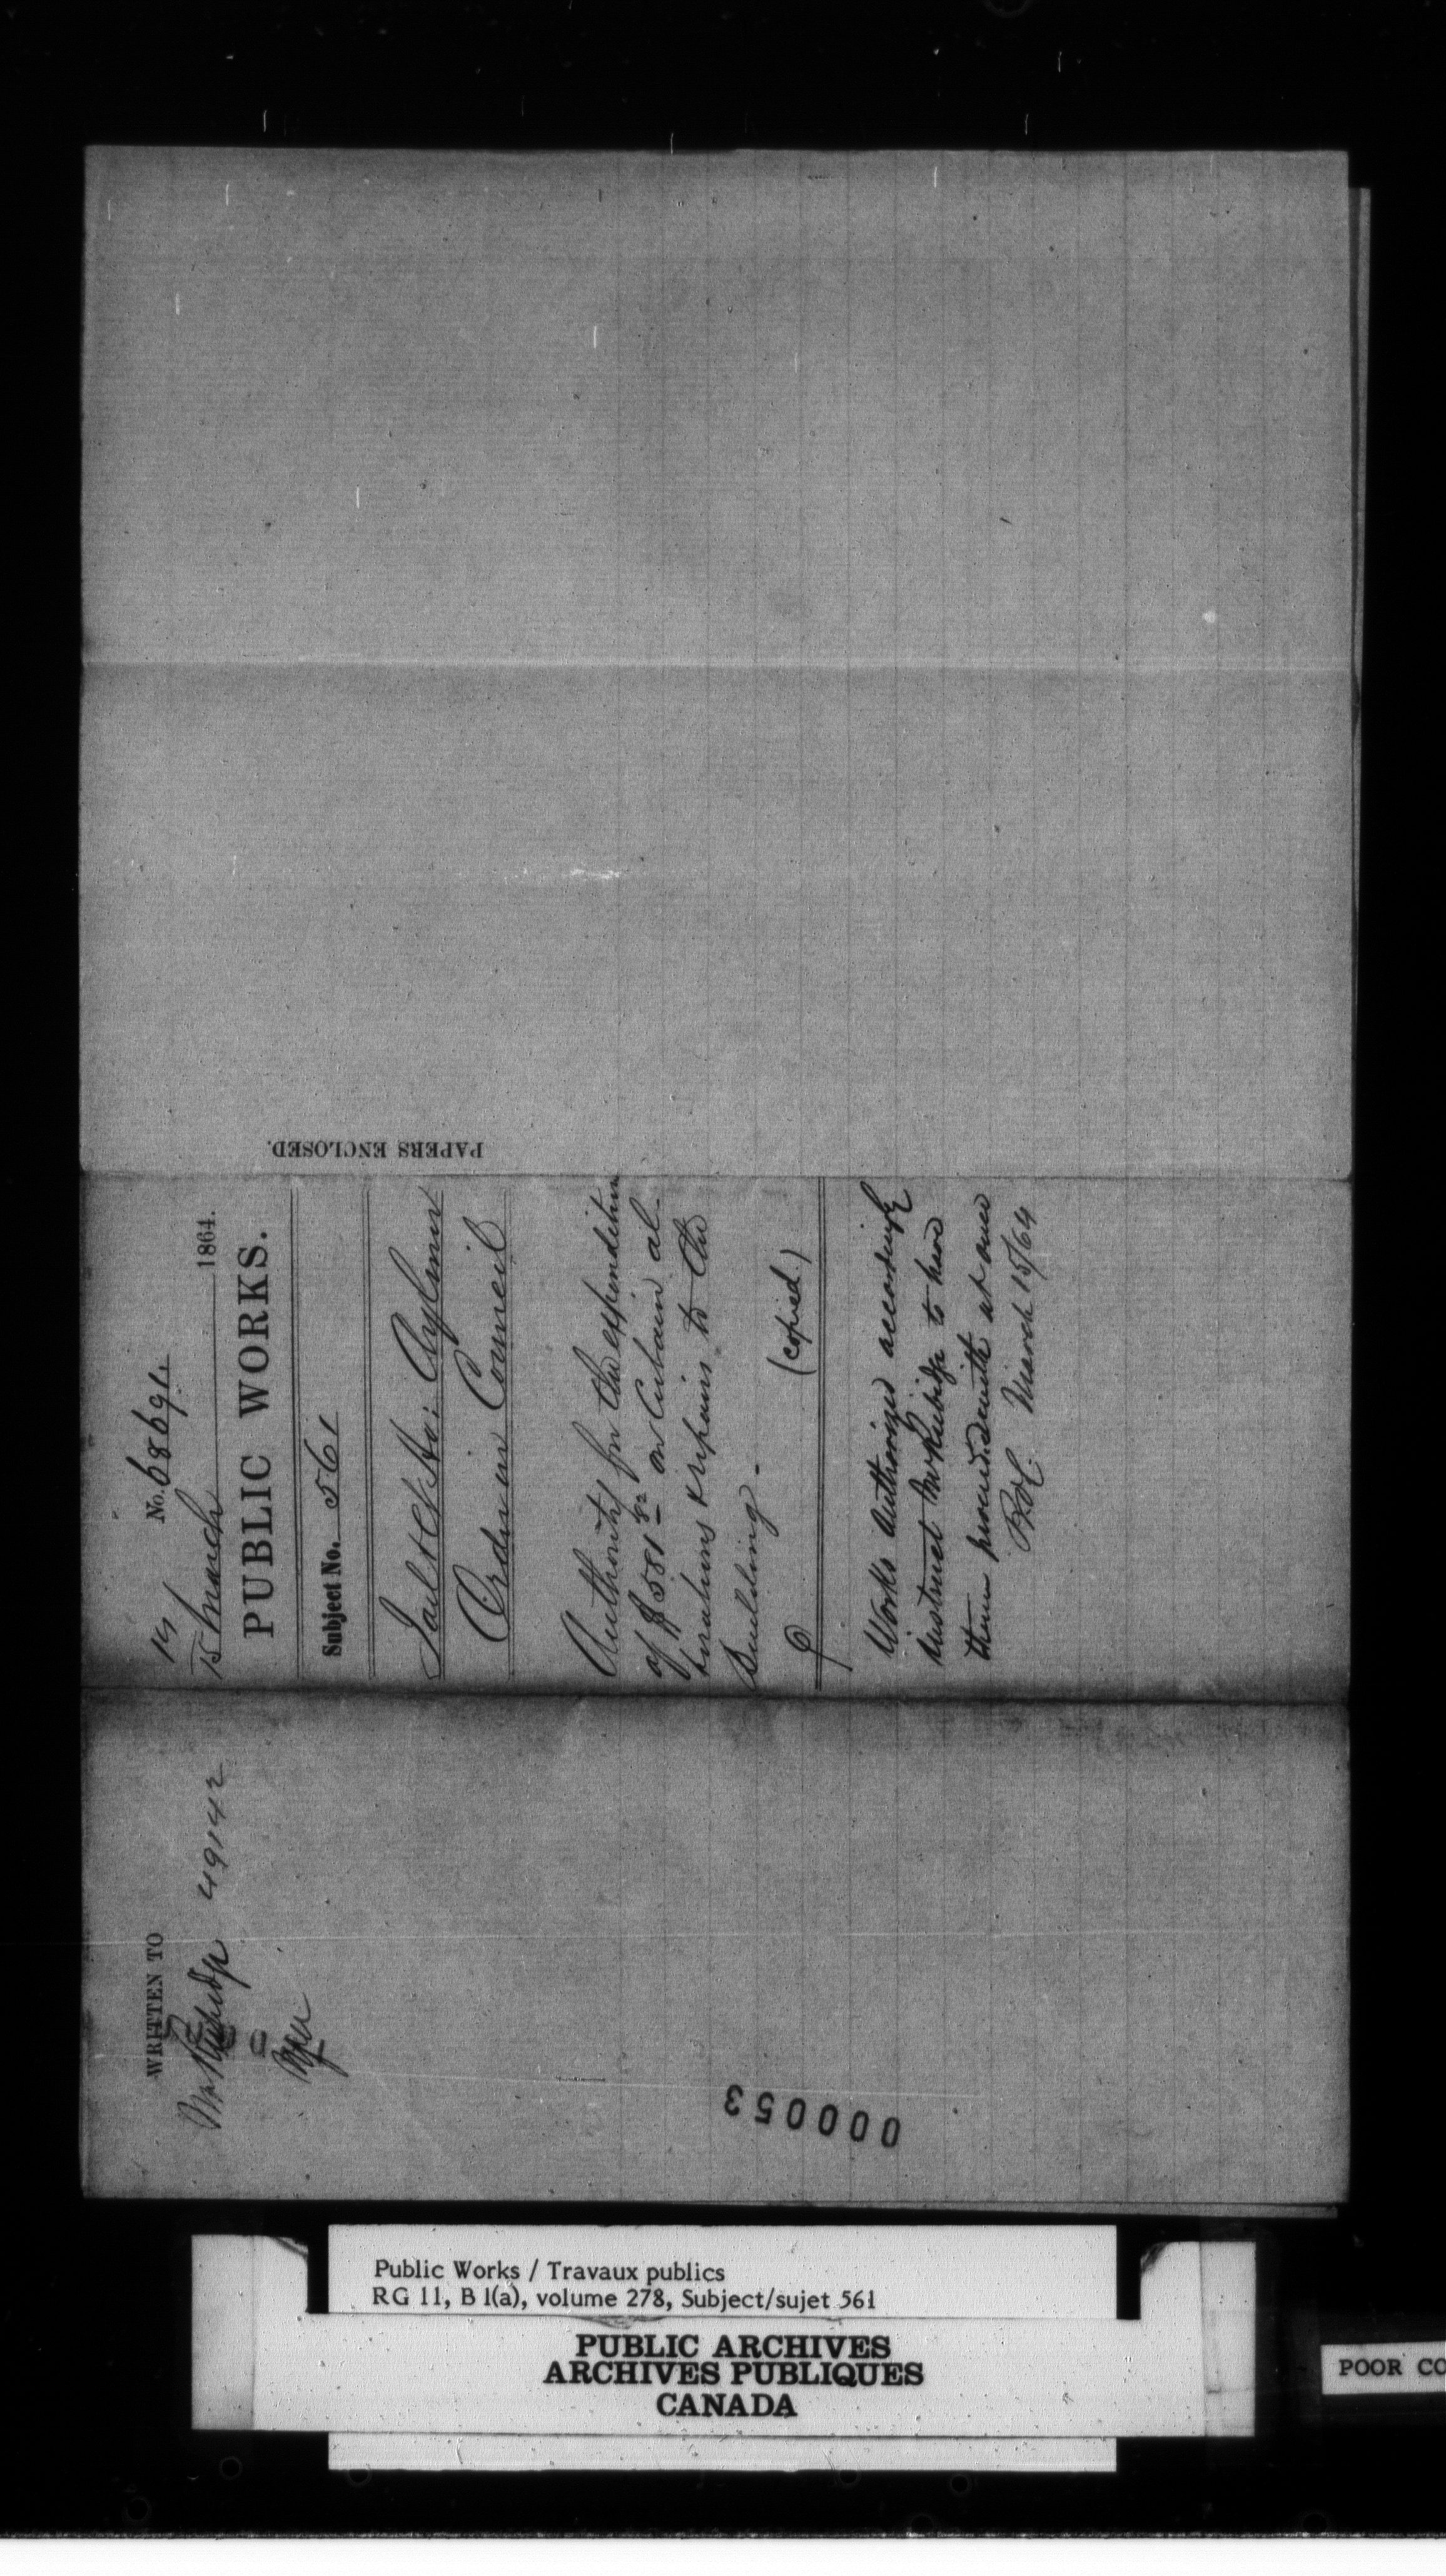 No. 68691.
15 March 1864.
PUBLIC WORKS.
Subject No. 561
Gaol & Ct Ho: Aylmer
Order in Council
Authority for the expenditure
of $581 82 on certain al-
terations & repairs to the
building.
(copied.)
Works authorized accordingly
instruct Mr Rubidge to have
them proceeded with at once
March 15/64
PAPERS ENCLOSED.
WRITTEN TO
Mr Rubidge 49142
000053
Public Works / Travaux publics
RG 11, B 1(a), volume 278, Subject/sujet 561
PUBLIC ARCHIVES
ARCHIVES PUBLIQUES
CANADA
POOR CO